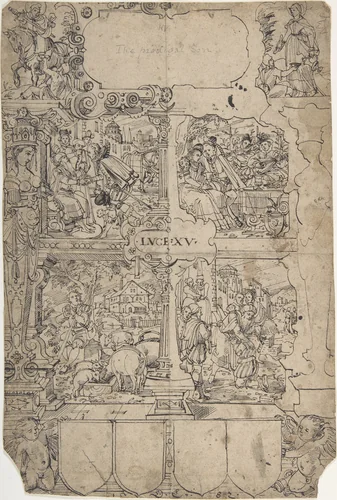 The prodigal Son
LVCE·XV·